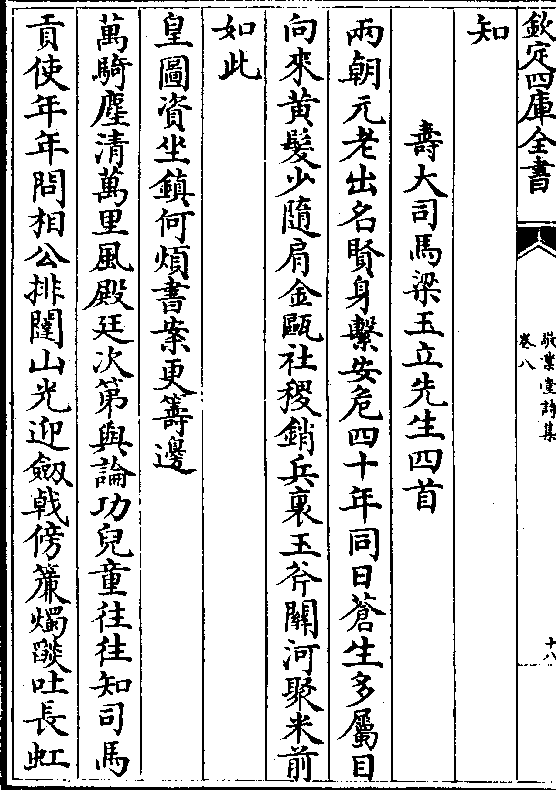 欽定四庫全書
敬業堂詩集
卷八
十八
知
壽大司馬梁玉立先生四首
兩朝元老出名賢身繫安危四十年同日蒼生多屬目
向來黄髮少隨肩金甌社稷銷兵裏玉斧關河聚米前
如此
皇圖資坐鎮何煩書案更籌邊
萬騎塵清萬里風殿廷次第與論功兒童往往知司馬
貢使年年問相公排闥山光迎劔㦸傍簾燭燄吐長虹